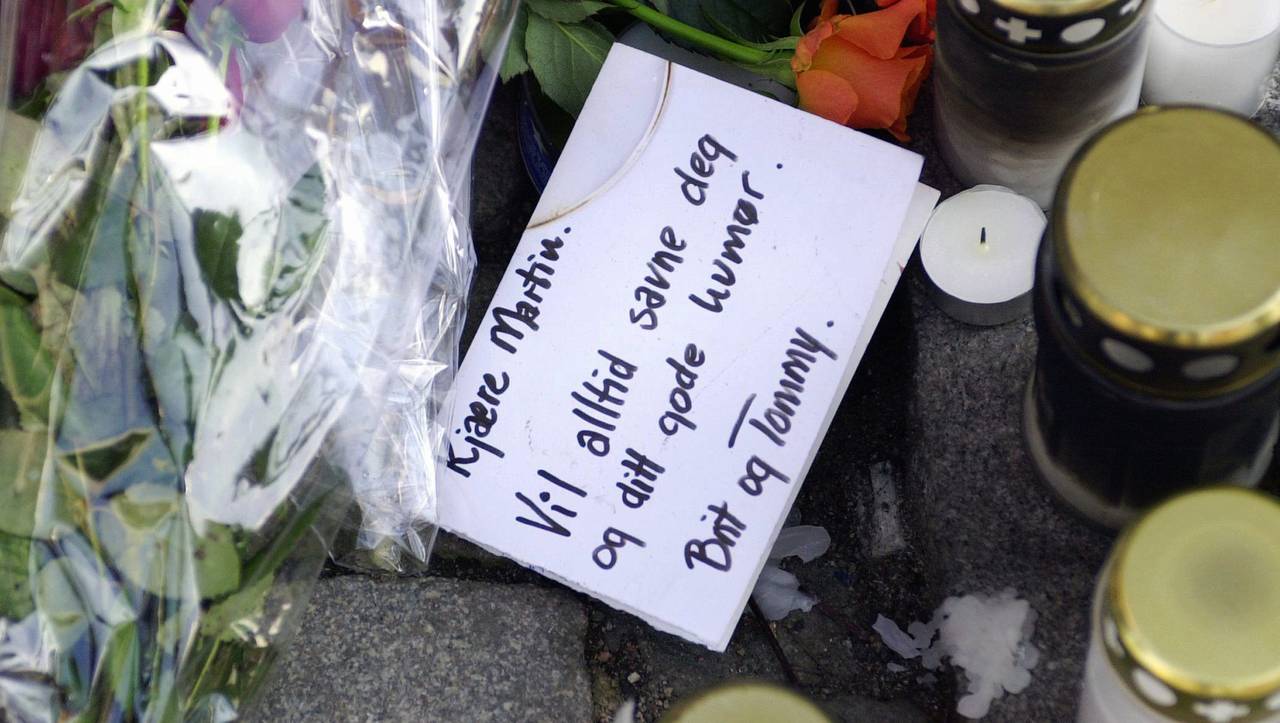 Kjære Martin.
Vil alltid savne deg
og ditt gode humør.
Brit og Tommy.